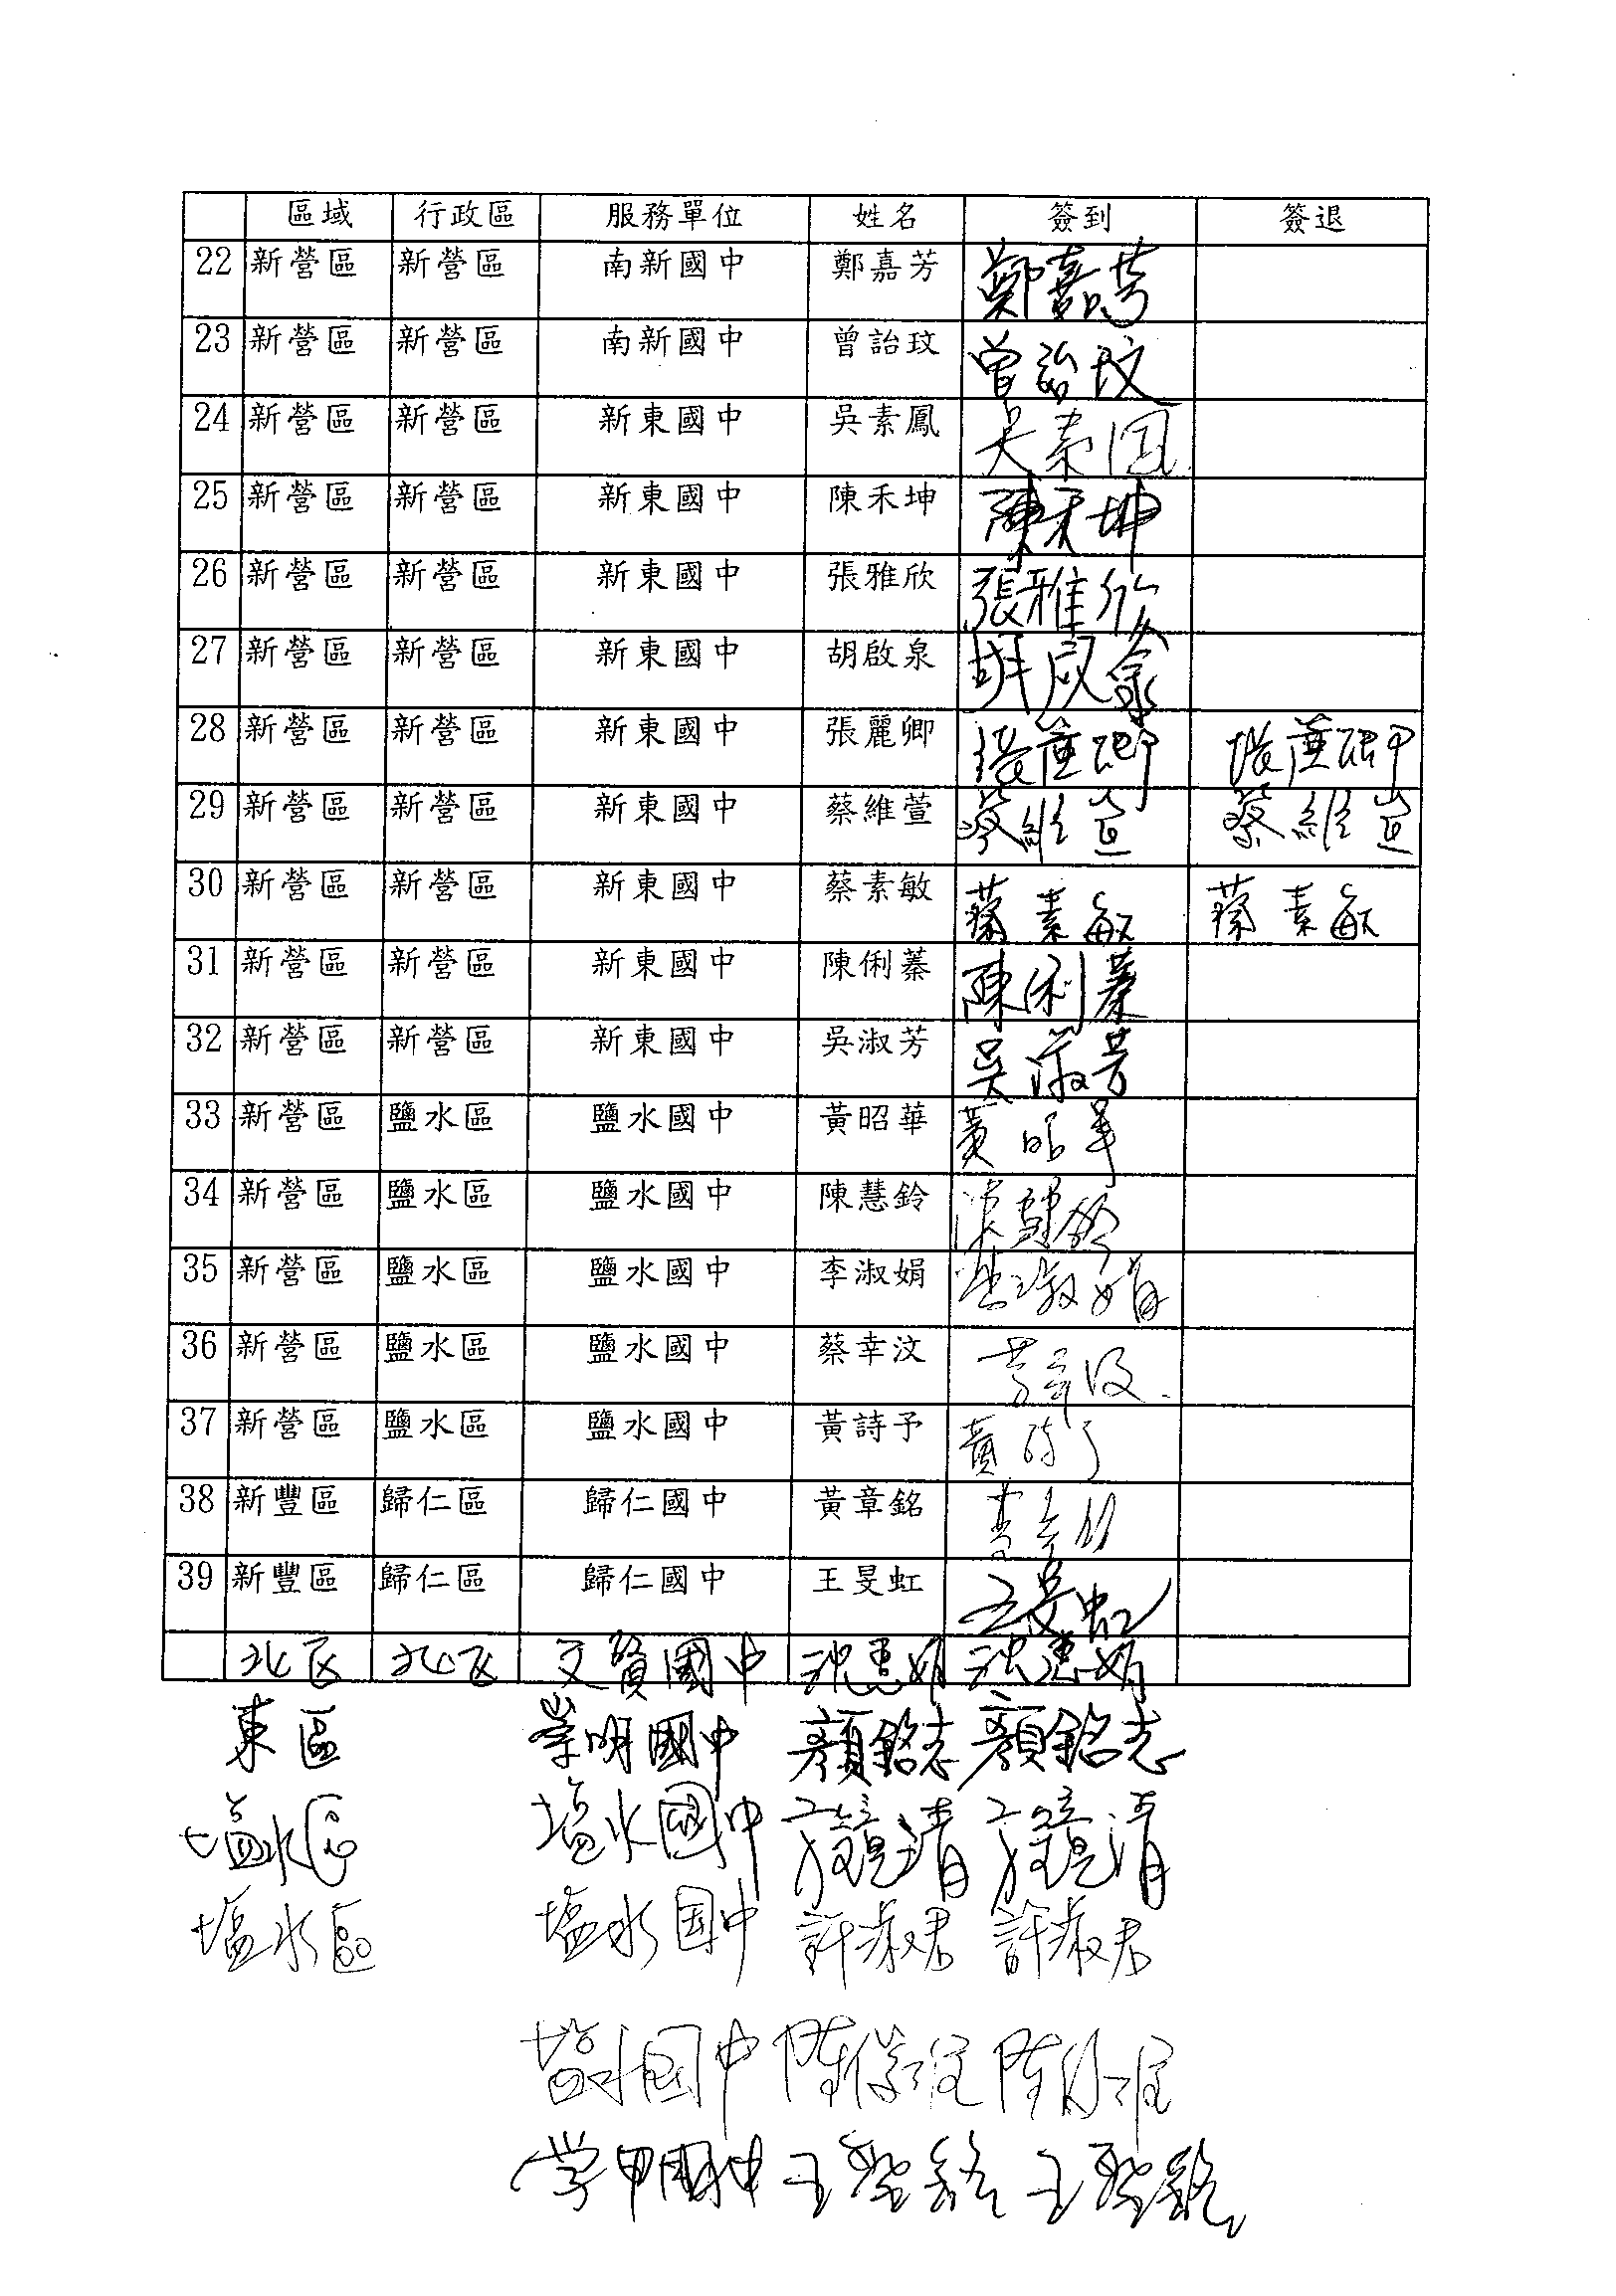 區域 行政區 服務單位 姓名 簽到 簽退
22 新營區 新營區 南新國中 鄭嘉芳 鄭嘉芳
23 新營區 新營區 南新國中 曾詒玟 曾詒玟
24 新營區 新營區 新東國中 吳素鳳 吳素凤
25 新營區 新營區 新東國中 陳禾坤 陳禾坤
26 新營區 新營區 新東國中 張雅欣 張雅欣
27 新營區 新營區 新東國中 胡啟泉 胡啟泉
28 新營區 新營區 新東國中 張麗卿 張麗卿 張麗卿
29 新營區 新營區 新東國中 蔡維萱 蔡維萱 蔡維萱
30 新營區 新營區 新東國中 蔡素敏 蔡素敏 蔡素敏
31 新營區 新營區 新東國中 陳俐蓁 陳俐蓁
32 新營區 新營區 新東國中 吳淑芳 吳淑芳
33 新營區 鹽水區 鹽水國中 黃昭華 黃昭華
34 新營區 鹽水區 鹽水國中 陳慧鈴 陳慧鈴
35 新營區 鹽水區 鹽水國中 李淑娟 李淑娟
36 新營區 鹽水區 鹽水國中 蔡幸汶 蔡幸汶
37 新營區 鹽水區 鹽水國中 黃詩予 黃詩予
38 新豐區 歸仁區 歸仁國中 黃章銘 黃章銘
39 新豐區 歸仁區 歸仁國中 王旻虹 王旻虹
北区 北区 文賢國中 沈惠娟 沈惠娟
東區 崇明國中 顏銘志 顏銘志
塩水区 塩水國中
塩水區 塩水国中 許淑君 許淑君
塩水国中
学甲國中 王聖銘 王聖銘